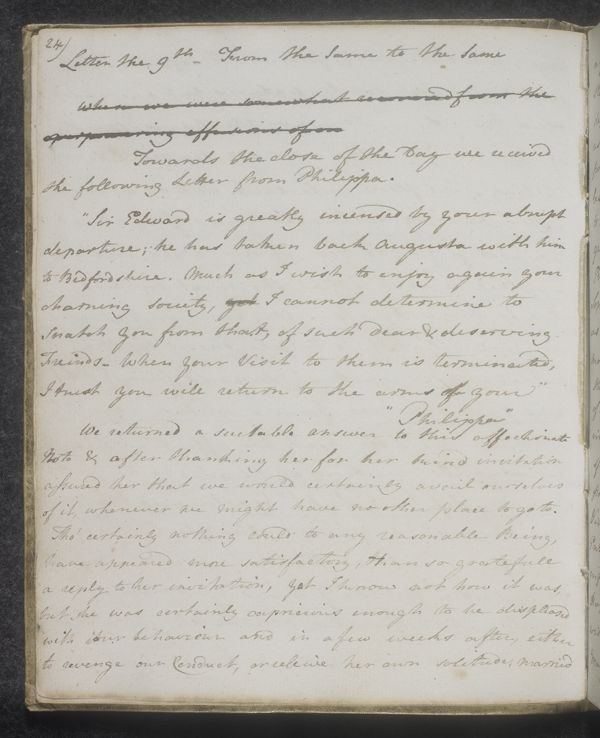 24)
Letter the 9th From the Same to the Same
When we were somewhat removed from the
effusions of
Towards the close of the Day we received
the following Letter from Philippa.
"Sir Edward is greatly incensed by your abrupt
departure; he has taken back Augusta with him
to Bedfordshire. Much as I wish to enjoy again your
charming society, I cannot determine to
Snatch you from that, of such dear & deserving
Freinds - When your Visit to them is terminated,
I trust you will return to the arms of your"
"Philippa"
We returned a suitable answer to this affectionate
Note & after thanking her for her kind invitation
assured her that we would certainly avail ourselves
of it, whenever we might have no other place to go to.
Tho' certainly nothing could to any reasonable Being,
have appeared more satisfactory, than so gratefull
a reply to her invitation, yet I know not how it was,
but she was certainly capricious enough to be displeased
with our behaviour and in a few weeks after, either
to revenge our Conduct, or releive her own solitude, married